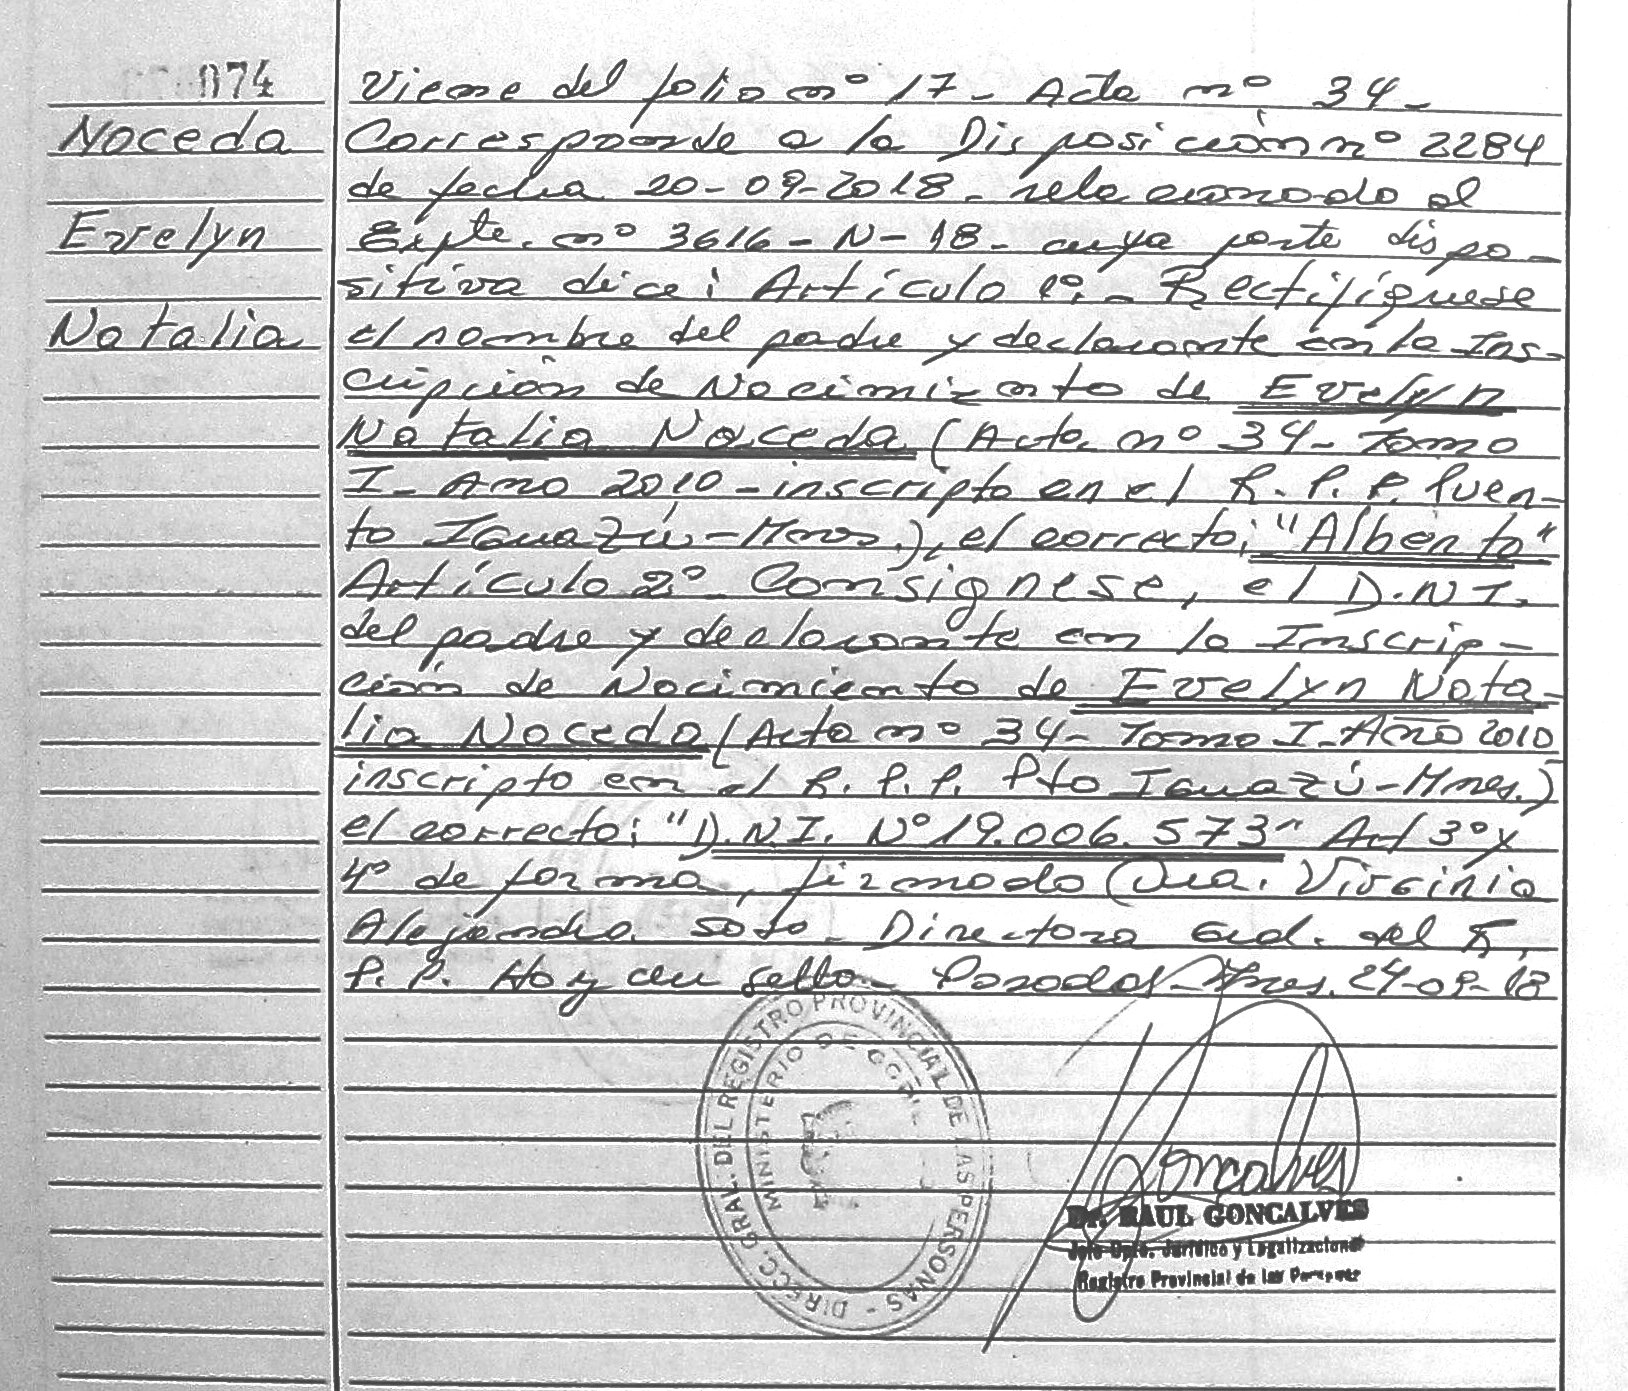 074
Noceda
Evelyn
Natalia
Viene del folio nº 17- Acta nº 34-
Corresponde a la Disposición nº 2284
de fecha 20-09-2018- relacionado al
Expte. nº 3616-N-18- cuya parte dispo-
sitiva dice: Artículo 1º- Rectifíquese
el nombre del padre y declarante en la Ins-
cripción de Nacimiento de Evelyn
Natalia Noceda (Acta nº 34- Tomo
I- Año 2010-inscripto en el R.P.P. Puer-
to Iguazú-Mnes.), el correcto: "Alberto"
Artículo 2º- Consígnese, el D.N.I.
del padre y declarante en la Inscrip-
ción de Nacimiento de Evelyn Nata-
lia Noceda (Acta nº 34- Tomo I-Año 2010
inscripto en el R.P.P. Pto Iguazú-Mnes.)
el correcto: "D.N.I. Nº 19.006.573" Art 3º y
4º de forma, firmado (Dra. Virginia
Alejandra Soto- Directora Gral. del R.
P.P. Hay un sello- Posadas-Mnes. 24-09-18
DIRECC. GRAL. DEL REGISTRO PROVINCIAL DE LAS PERSONAS -
MINISTERIO DE GOBIE
Goncalves
Dr. RAUL GONCALVES
Jefe Dpto. Jurídico y Legalizaciones
Registro Provincial de las Personas